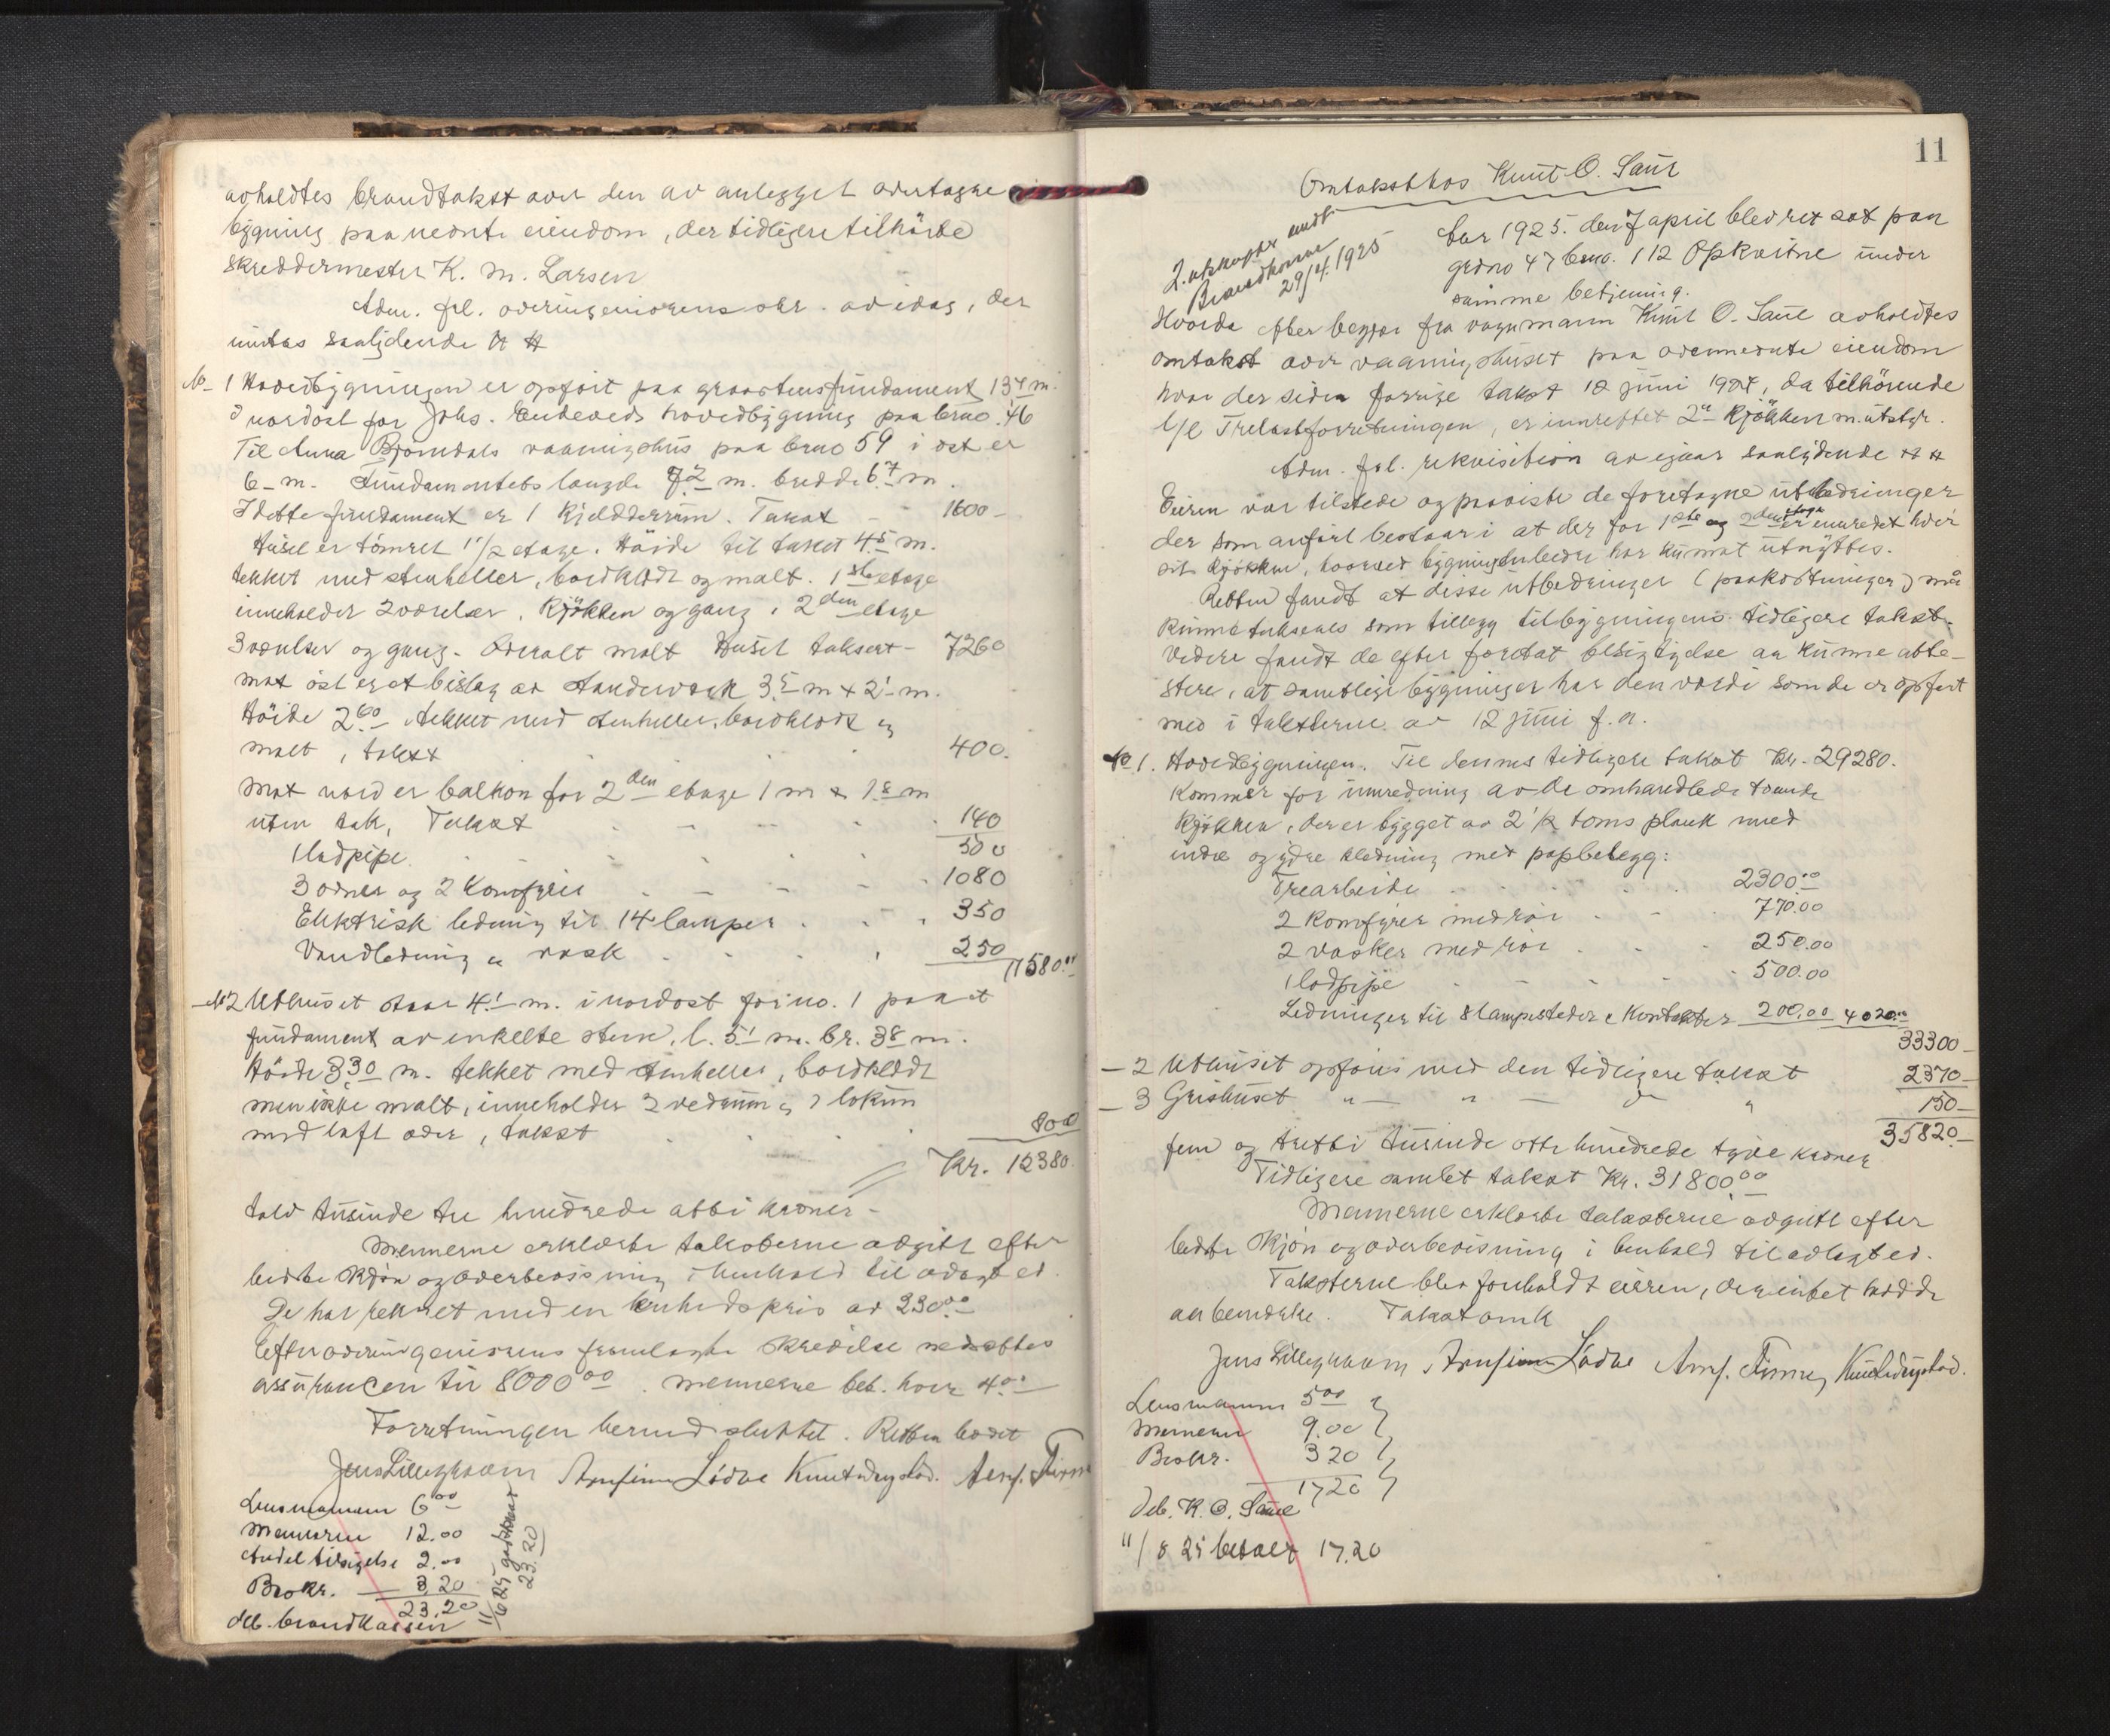 avholdtes brandtakst over den av anlegget overtagne
bygning paa nevnte eiendom, der tidligere tilhörte
skreddermester K. M. Larsen
Adm. frl. overingeniörens skr. av idag, der
intas saalydende
No 1 Hovedbygningen er opfört paa graastensfundament 13⁴ m.
i nordost for Johs. hovedbygning paa bno. 46
Til Anna Björndals vaaningshus paa bno 59 i öst er
6 – m. Fundamentets længde 7² m. bredde 6⁷ m.
I dette fundament er 1 kjelderrum. Takst – 1600 –
Huset er tömret 1 1/2 etage. Höide til taket 4⁵ m.
tekket med stenheller, bordklædt og malt. 1ste etage
inneholder 2 værelser, kjökken og gang, 2den etage
3 værelser og gang. Overalt malt Huset taksert – 7260
mot öst er et bislag av standerverk 3⁵ m x 2¹ m.
Höide 2⁶⁰ tekket med stenheller, bordklædt og
malt, takst 400.
Mot nord er balkon for 2den etage 1 m x 1⁸ m
uten tak, Takst 140
1 lodpipe 500
3 ovner og 2 komfyrer 1080
Elektrisk ledning til 14 lamper 350
Vandledning og vask 250 11580.00
No 2 Uthuset staar 4¹ m. i nordost for no. 1 paa et
fundament av enkelte stene, l. 5¹ m. br. 3⁸ m.
Höide 3³⁰ m. tekket med stenheller, bordklædt
men ikke malt, inneholder 2 vedrum og 2 lokum
med loft over, takst 800
Kr. 12380
tolv tusinde tre hundrede otti kroner –
Mennerne erklærte taksterne avgitt efter
bedste skjön og overbevisning i henhold til avlagt ed.
De har regnet med en enhetspris av 230.00
Efter overingeniörens fremlagte skrivelse nedsettes
assuransen til 8000.00. Mennerne beb. hver 4.00
Forretningen hermed sluttet. Retten hevet
Jens Lillegraven Arnfinn Lödve Knut Arnf. Finne
Lensmannen 6.00
Mennerne 12.00
Andel tilsigelse 2.00
Brokr. 3,20
23,20
deb. brandkassen
11/6 25 23.20
11
Omtakst hos Knut O. Saue
2. utskrifter sendt
Brandkassen
29/4. 1925
Aar 1925. den 7 april blev ret sat paa
grdno 47 bno. 112 Opkvitne under
samme betjening.
Hvorda efter begjær fra vognmann Knut O. Saue avholdtes
omtakst over vaaningshuset paa ovennevnte eiendom
hvor der siden forrige takst 12 juni 1924, da tilhörende
l/l Trelastforretningen, er innreftet 2 kjökken m. utstyr.
Adm. frl. rekvisition av eieren saalydende
Eieren var tilstede og paaviste de foretagne utbedringer
der som anfört bestaar i at der for 1ste og 2den etage er innredet hver
sit kjökken, hvorved bygningen bedre har kunnet utnyttes.
Retten fandt at disse utbedringer (paakostninger) maa
kunne takseres som tillegg til bygningens tidligere takst.
Videre fandt de efter foretat besigtigelse aa kunne atte-
stere, at samtlige bygninger har den værdi som de er opfört
med i taksterne av 12 juni f. a.
No 1. Hovedbygningen. Til dennes tidligere takst Kr. 29280.
kommer for innredning av de omhandlede tvende
kjökken, der er bygget av 2 1/2 toms plank med
indre og ydre klædning med papbelegg:
Trearbeide 2300.00
2 komfyrer med rör 770.00
2 vasker med rör 250.00
1 lodpipe 500.00
Ledninger til 8 lampesteder & kontakter 200.00 4020.00
33300 –
– 2 Uthuset opföres med den tidligere takst 2370 –
– 3 Grishuset " – " – " 150 –
35820 –
fem og tretti tusinde otte hundrede tyve kroner
Tidligere samlet takst Kr. 31800.00
Mennerne erklærte taksterne avgitt efter
bedste skjön og overbevisning i henhold til avlagt ed.
Taksterne blev foreholdt eieren, der intet hadde
aa bemerke. Takstomk
Jens Lillegraven Arnfinn Lödve Arnf. Finne, Knut
Lensmannen 5.00
Mennene 9.00
Brokr. 3 20
17,20
deb. K. O. Saue
11/8 25 betalt 17.20